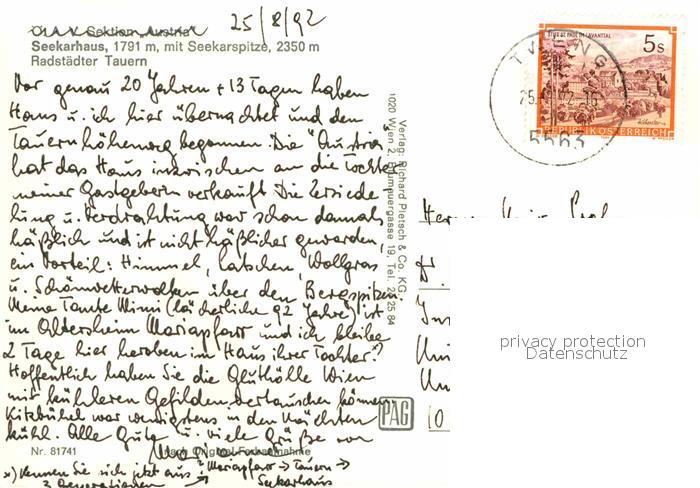 25/8/92
Ö.A.V. Sektion „Austria“
Seekarhaus, 1791 m, mit Seekarspitze, 2350 m
Radstädter Tauern
Vor genau 20 Jahren + 13 Tagen haben
Hans u. ich hier übernachtet und den
Tauernhöhenweg begonnen. Die "Austria"
hat das Haus inzwischen an die Tochter
meiner Gastgeberin verkauft. Die Zersiede
lung u. Verdrahtung war schon damals
häßlich und ist nicht häßlicher geworden,
ein Vorteil: Himmel, Latschen, Wollgras
u. Schönwetterwolken über den Bergspitzen.
Meine Tante Mimi (lächerliche 92 Jahre) ist
im Altersheim Mariapfarr und ich bleibe
2 Tage hier heroben im Haus ihrer Tochter.*)
Hoffentlich haben Sie die Gluthölle Wien
mit kühleren Gefilden vertauschen können
Kitzbühel war wenigstens in den Nächten
kühl. Alle Gute u. viele Grüße von
Maria
Nr. 81741
nach Original-Farbaufnahme
*) Kennen Sie sich jetzt aus? Mariapfarr → Tauern →
3 Generationen → Seekarhaus
Verlag: Richard Pietsch & Co. KG.
1020 Wien 2, Tel.
PAG
STIFT ST. PAUL IM LAVANTTAL
5s
REPUBLIK ÖSTERREICH
TWENG
25.
5563
Herrn
10
privacy protection
Datenschutz